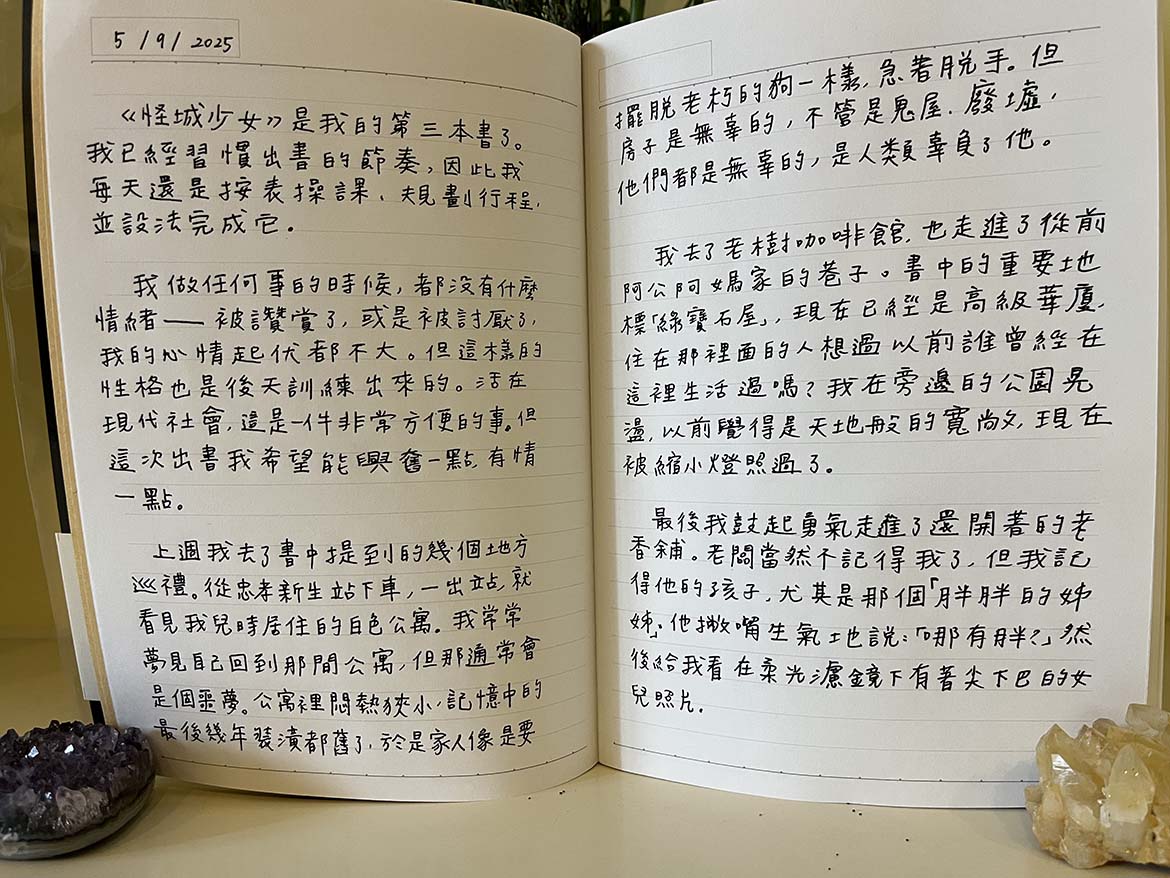 5/9/2025
《怪城少女》是我的第三本書了。
我已經習慣出書的節奏，因此我
每天還是按表操課、規劃行程，
並設法完成它。
我做任何事的時候，都沒有什麼
情緒——被讚賞了，或是被討厭了，
我的心情起伏都不大。但這樣的
性格也是後天訓練出來的。活在
現代社會，這是一件非常方便的事。但
這次出書我希望能興奮一點，有情
一點。
上週我去了書中提到的幾個地方
巡禮。從忠孝新生站下車，一出站，就
看見我兒時居住的白色公寓。我常常
夢見自己回到那間公寓，但那通常會
是個噩夢。公寓裡悶熱狹小，記憶中的
最後幾年裝潢都舊了，於是家人像是要
擺脫老朽的狗一樣，急著脫手。但
房子是無辜的，不管是鬼屋、廢墟，
他們都是無辜的，是人類辜負了他。
我去了老樹咖啡館，也走進了從前
阿公阿媽家的巷子。書中的重要地
標「綠寶石屋」，現在已經是高級華廈，
住在那裡面的人想過以前誰曾經在
這裡生活過嗎？我在旁邊的公園晃
盪，以前覺得是天地般的寬敞，現在
被縮小燈照過了。
最後我鼓起勇氣走進了還開著的老
香舖。老闆當然不記得我了，但我記
得他的孩子，尤其是那個「胖胖的姊
姊」，他撇嘴生氣地說：「哪有胖？」然
後給我看在柔光濾鏡下有著尖下巴的女
兒照片。